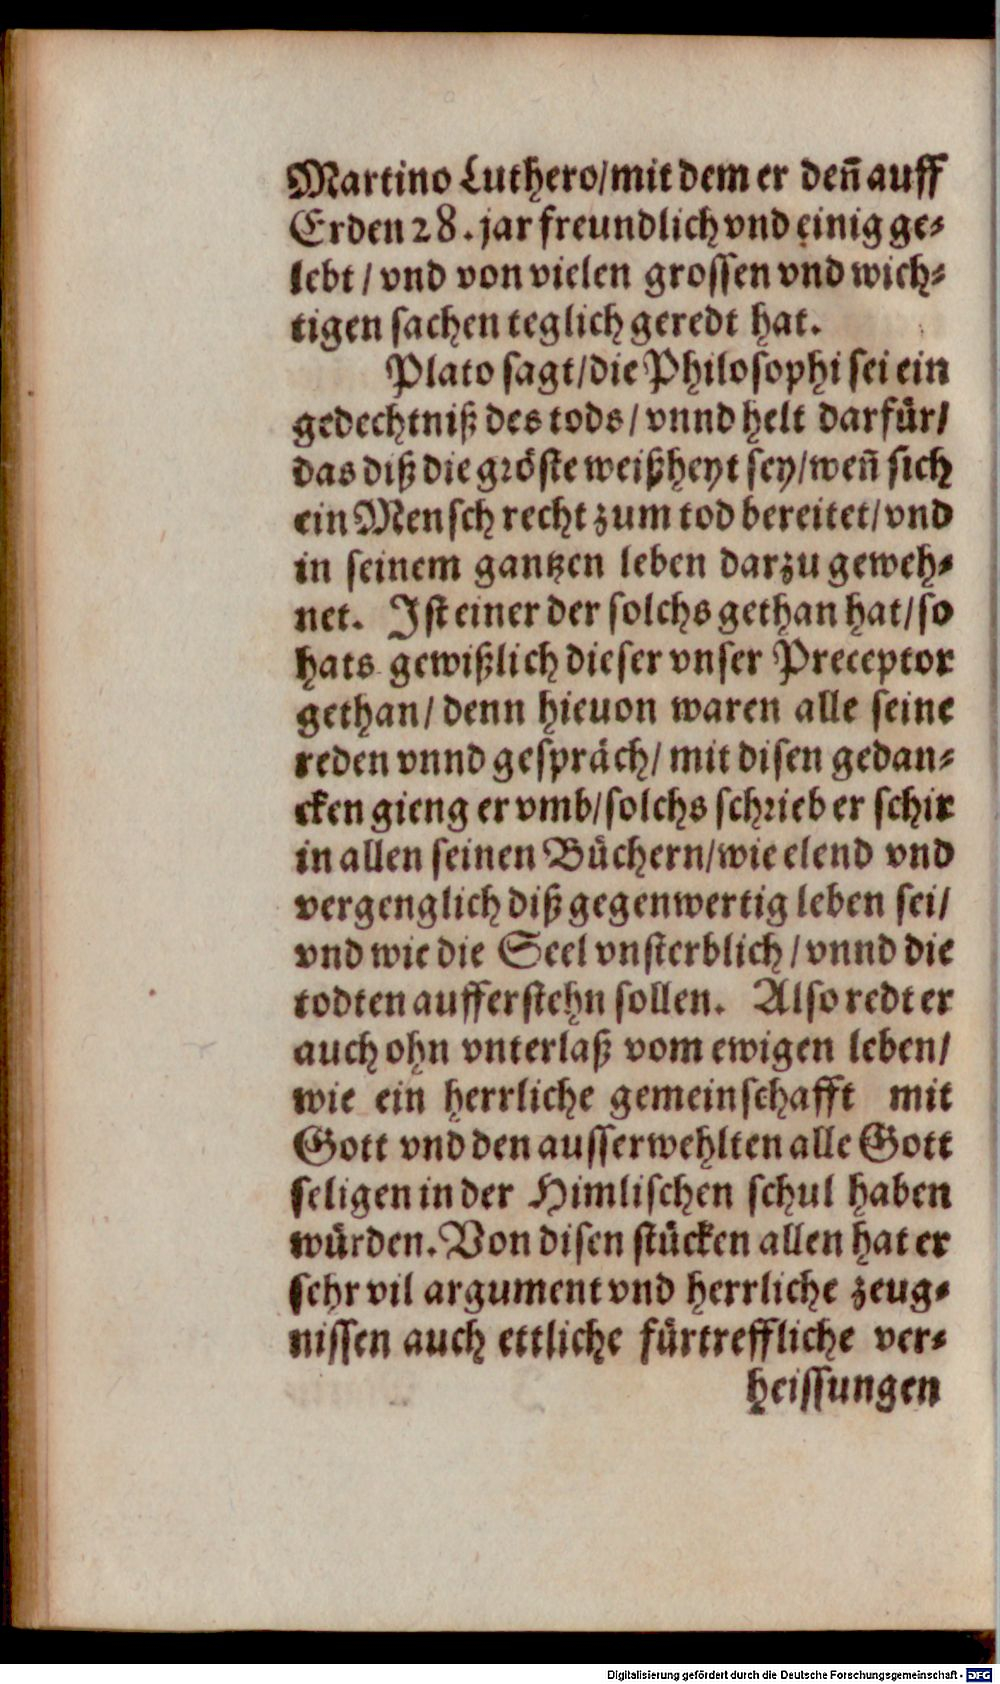 Martino Luthero/mit dem er deñ auff
Erden 28. jar freundlich vnd einig ge⸗
lebt / vnd von vielen grossen vnd wich⸗
tigen sachen teglich geredt hat.
Plato sagt/die Philosophi sei ein
gedechtniß des tods / vnnd helt darfür/
das diß die gröste weißheyt sey/weñ sich
ein Mensch recht zum tod bereitet/vnd
in seinem gantzen leben darzu geweh⸗
net. Ist einer der solchs gethan hat/so
hats gewißlich dieser vnser Preceptor
gethan/ denn hieuon waren alle seine
reden vnnd gespräch/ mit disen gedan⸗
cken gieng er vmb/solchs schrieb er schir
in allen seinen Büchern/wie elend vnd
vergenglich diß gegenwertig leben sei/
vnd wie die Seel vnsterblich / vnnd die
todten aufferstehn sollen. Also redt er
auch ohn vnterlaß vom ewigen leben/
wie ein herrliche gemeinschafft mit
Gott vnd den ausserwehlten alle Gott
seligen in der Himlischen schul haben
würden. Von disen stücken allen hat er
sehr vil argument vnd herrliche zeug⸗
nissen auch ettliche fürtreffliche ver⸗
heissungen
Digitalisierung gefördert durch die Deutsche Forschungsgemeinschaft - DFG